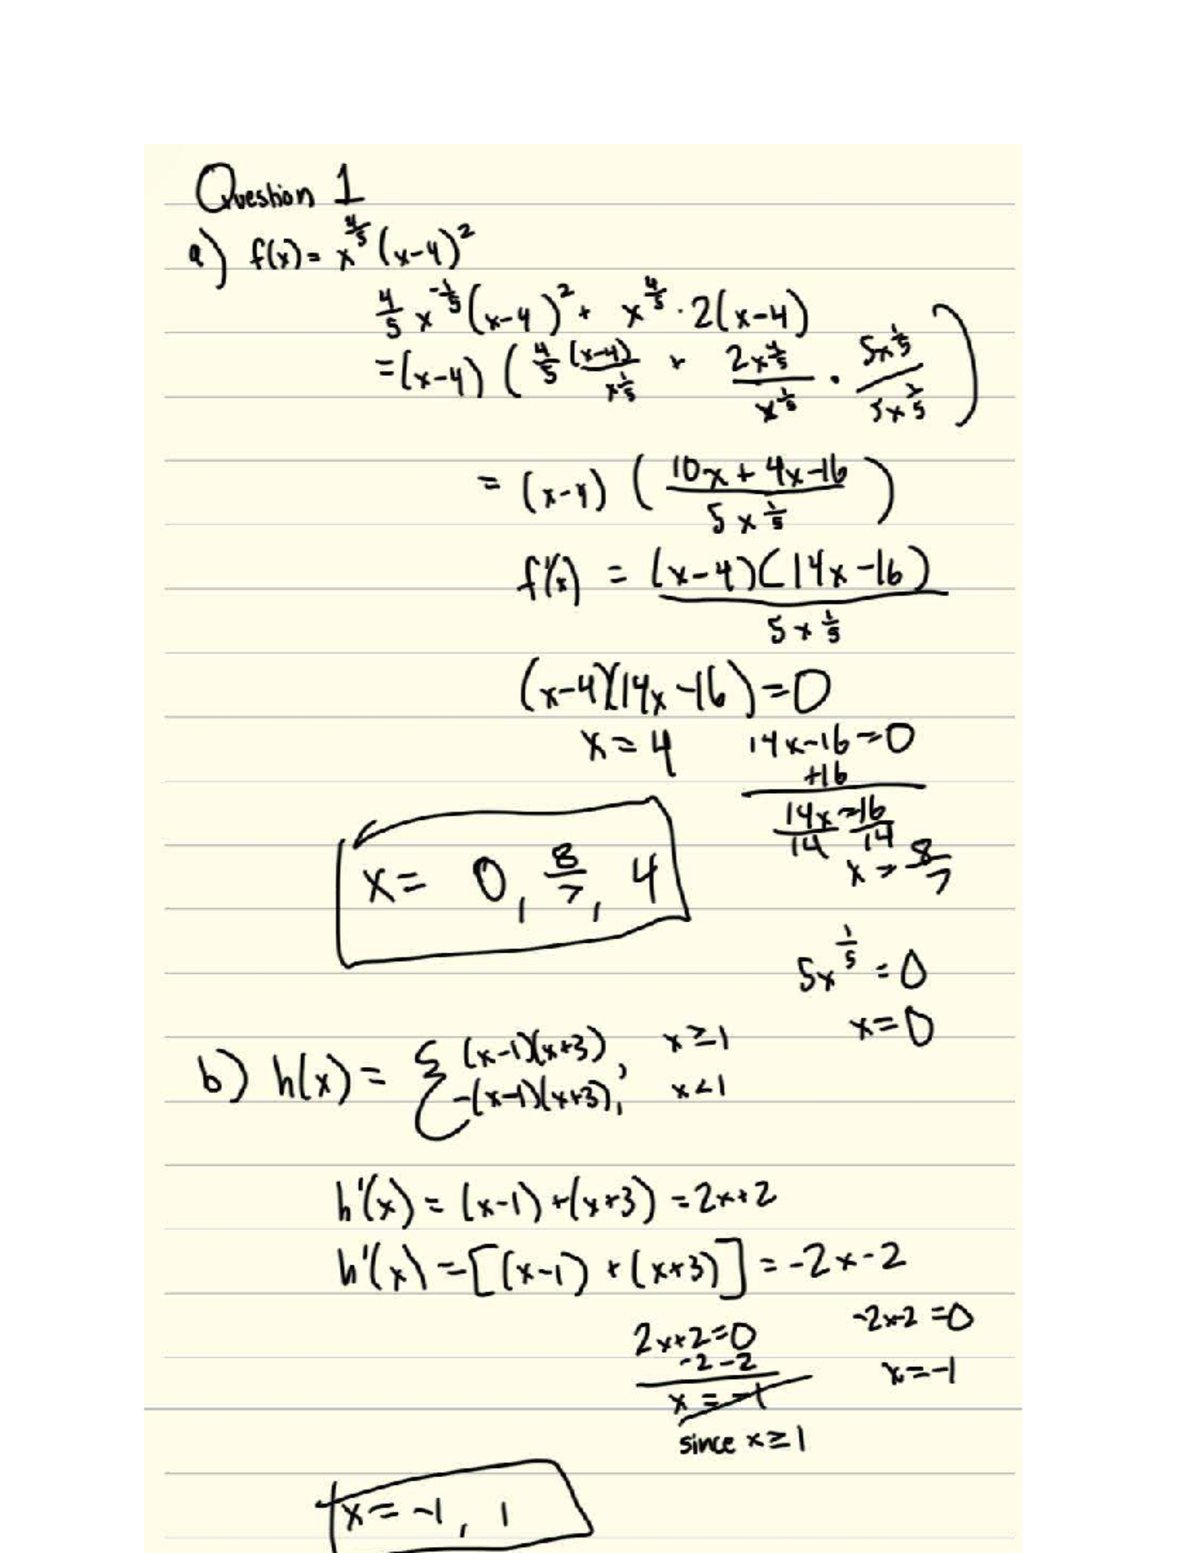 Question 1
a) f(x) = x^(4/5) (x-4)^2
4/5 x^(-1/5) (x-4)^2 + x^(4/5) · 2(x-4)
= (x-4) ( 4/5 (x-4)/x^(1/5) + 2x^(4/5)/x^(1/5) · 5x^(1/5)/5x^(1/5) )
= (x-4) ( (10x + 4x-16)/(5x^(1/5)) )
f'(x) = (x-4)(14x-16)/(5x^(1/5))
(x-4)(14x-16) = 0
x = 4 14x-16 = 0
+16
14x/14 = 16/14
x = 8/7
x = 0, 8/7, 4
5x^(1/5) = 0
x = 0
b) h(x) = { (x-1)(x+3), x ≥ 1
-(x-1)(x+3), x < 1
h'(x) = (x-1) + (x+3) = 2x+2
h'(x) = -[(x-1) + (x+3)] = -2x-2
2x+2=0 -2x-2 = 0
-2 -2
x = -1 x = -1
since x ≥ 1
x = -1, 1